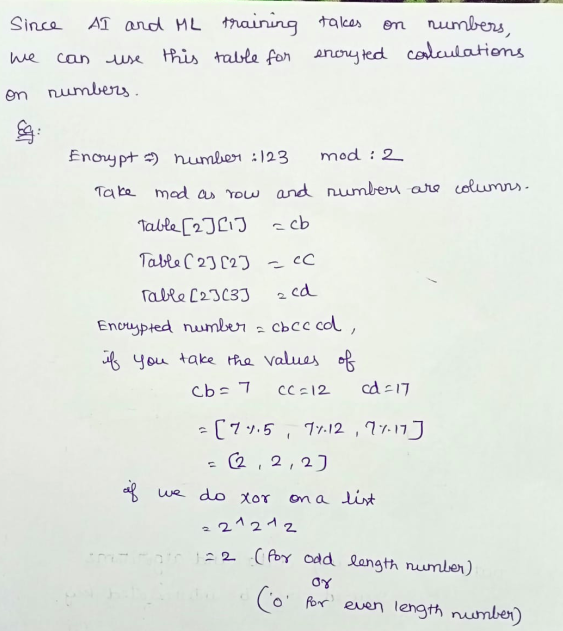 Since AI and ML training takes on numbers,
we can use this table for encryted calculations
on numbers.
Eg:
Encrypt => number : 123 mod : 2
Take mod as row and numbers are columns.
Table[2][1] = cb
Table[2][2] = cc
Table[2][3] = cd
Encrypted number = cbcccd,
if you take the values of
cb = 7 cc = 12 cd = 17
= [7%5, 7%12, 7%17]
= [2, 2, 2]
if we do xor on a list
= 2^2^2
= 2 (for odd length number)
or
('0' for even length number)